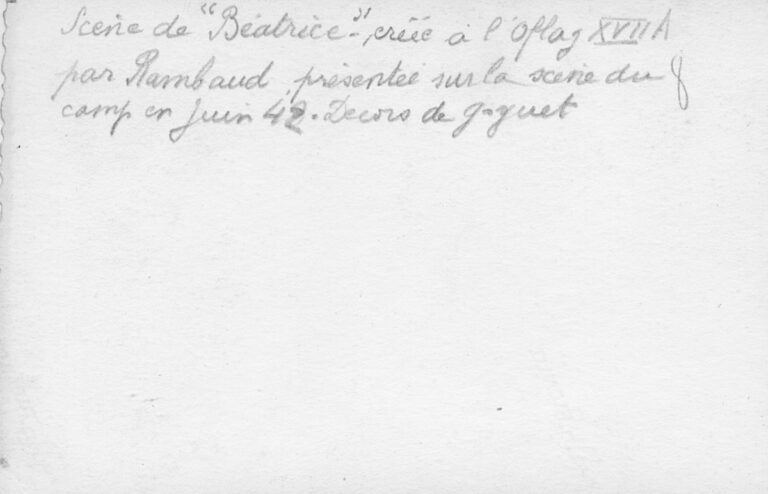 Scène de "Béatrice", créé à l'Oflag XVII A
par Rambaud, présentée sur la scène du
camp en Juin 42. Decors de Goguet